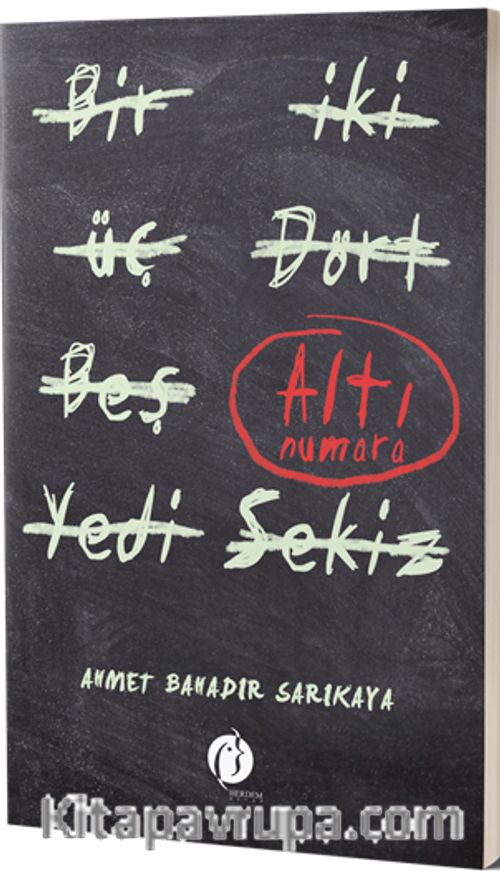 Bir iki
üç Dört
Beş Altı
numara
Yedi Sekiz
AHMET BAHADIR SARIKAYA
HERDEM
KİTAP
kitapavrupa.com